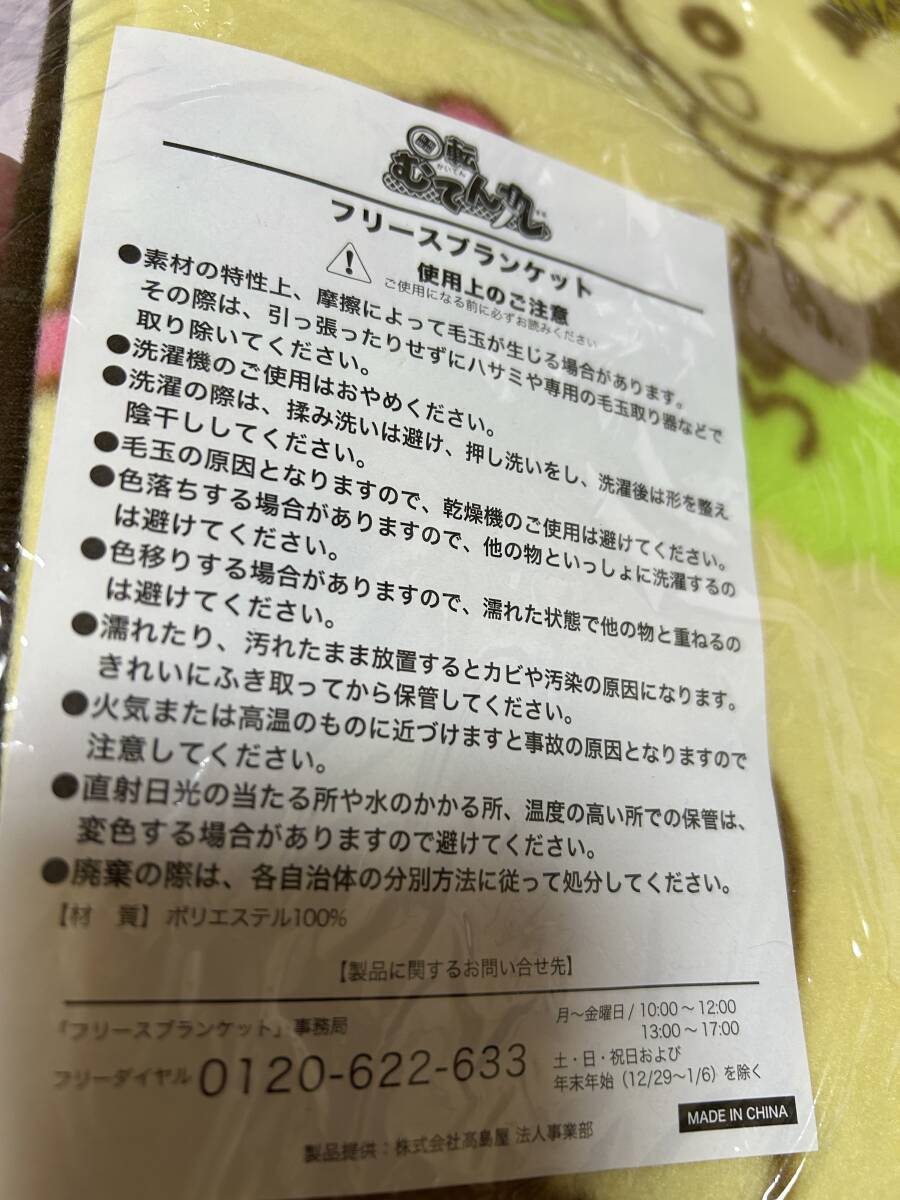 回転
かいてん
むてん丸
フリースブランケット
使用上のご注意
ご使用になる前に必ずお読みください
●素材の特性上、摩擦によって毛玉が生じる場合があります。
その際は、引っ張ったりせずにハサミや専用の毛玉取り器などで
取り除いてください。
●洗濯機のご使用はおやめください。
●洗濯の際は、揉み洗いは避け、押し洗いをし、洗濯後は形を整え
陰干ししてください。
●毛玉の原因となりますので、乾燥機のご使用は避けてください。
●色落ちする場合がありますので、他の物といっしょに洗濯するの
は避けてください。
●色移りする場合がありますので、濡れた状態で他の物と重ねるの
は避けてください。
●濡れたり、汚れたまま放置するとカビや汚染の原因になります。
きれいにふき取ってから保管してください。
●火気または高温のものに近づけますと事故の原因となりますので
注意してください。
●直射日光の当たる所や水のかかる所、温度の高い所での保管は、
変色する場合がありますので避けてください。
●廃棄の際は、各自治体の分別方法に従って処分してください。
【材　質】ポリエステル100%
【製品に関するお問い合せ先】
「フリースブランケット」事務局
フリーダイヤル 0120-622-633
月～金曜日 / 10:00 ～ 12:00
13:00 ～ 17:00
土・日・祝日および
年末年始 (12/29～1/6) を除く
MADE IN CHINA
製品提供：株式会社髙島屋 法人事業部